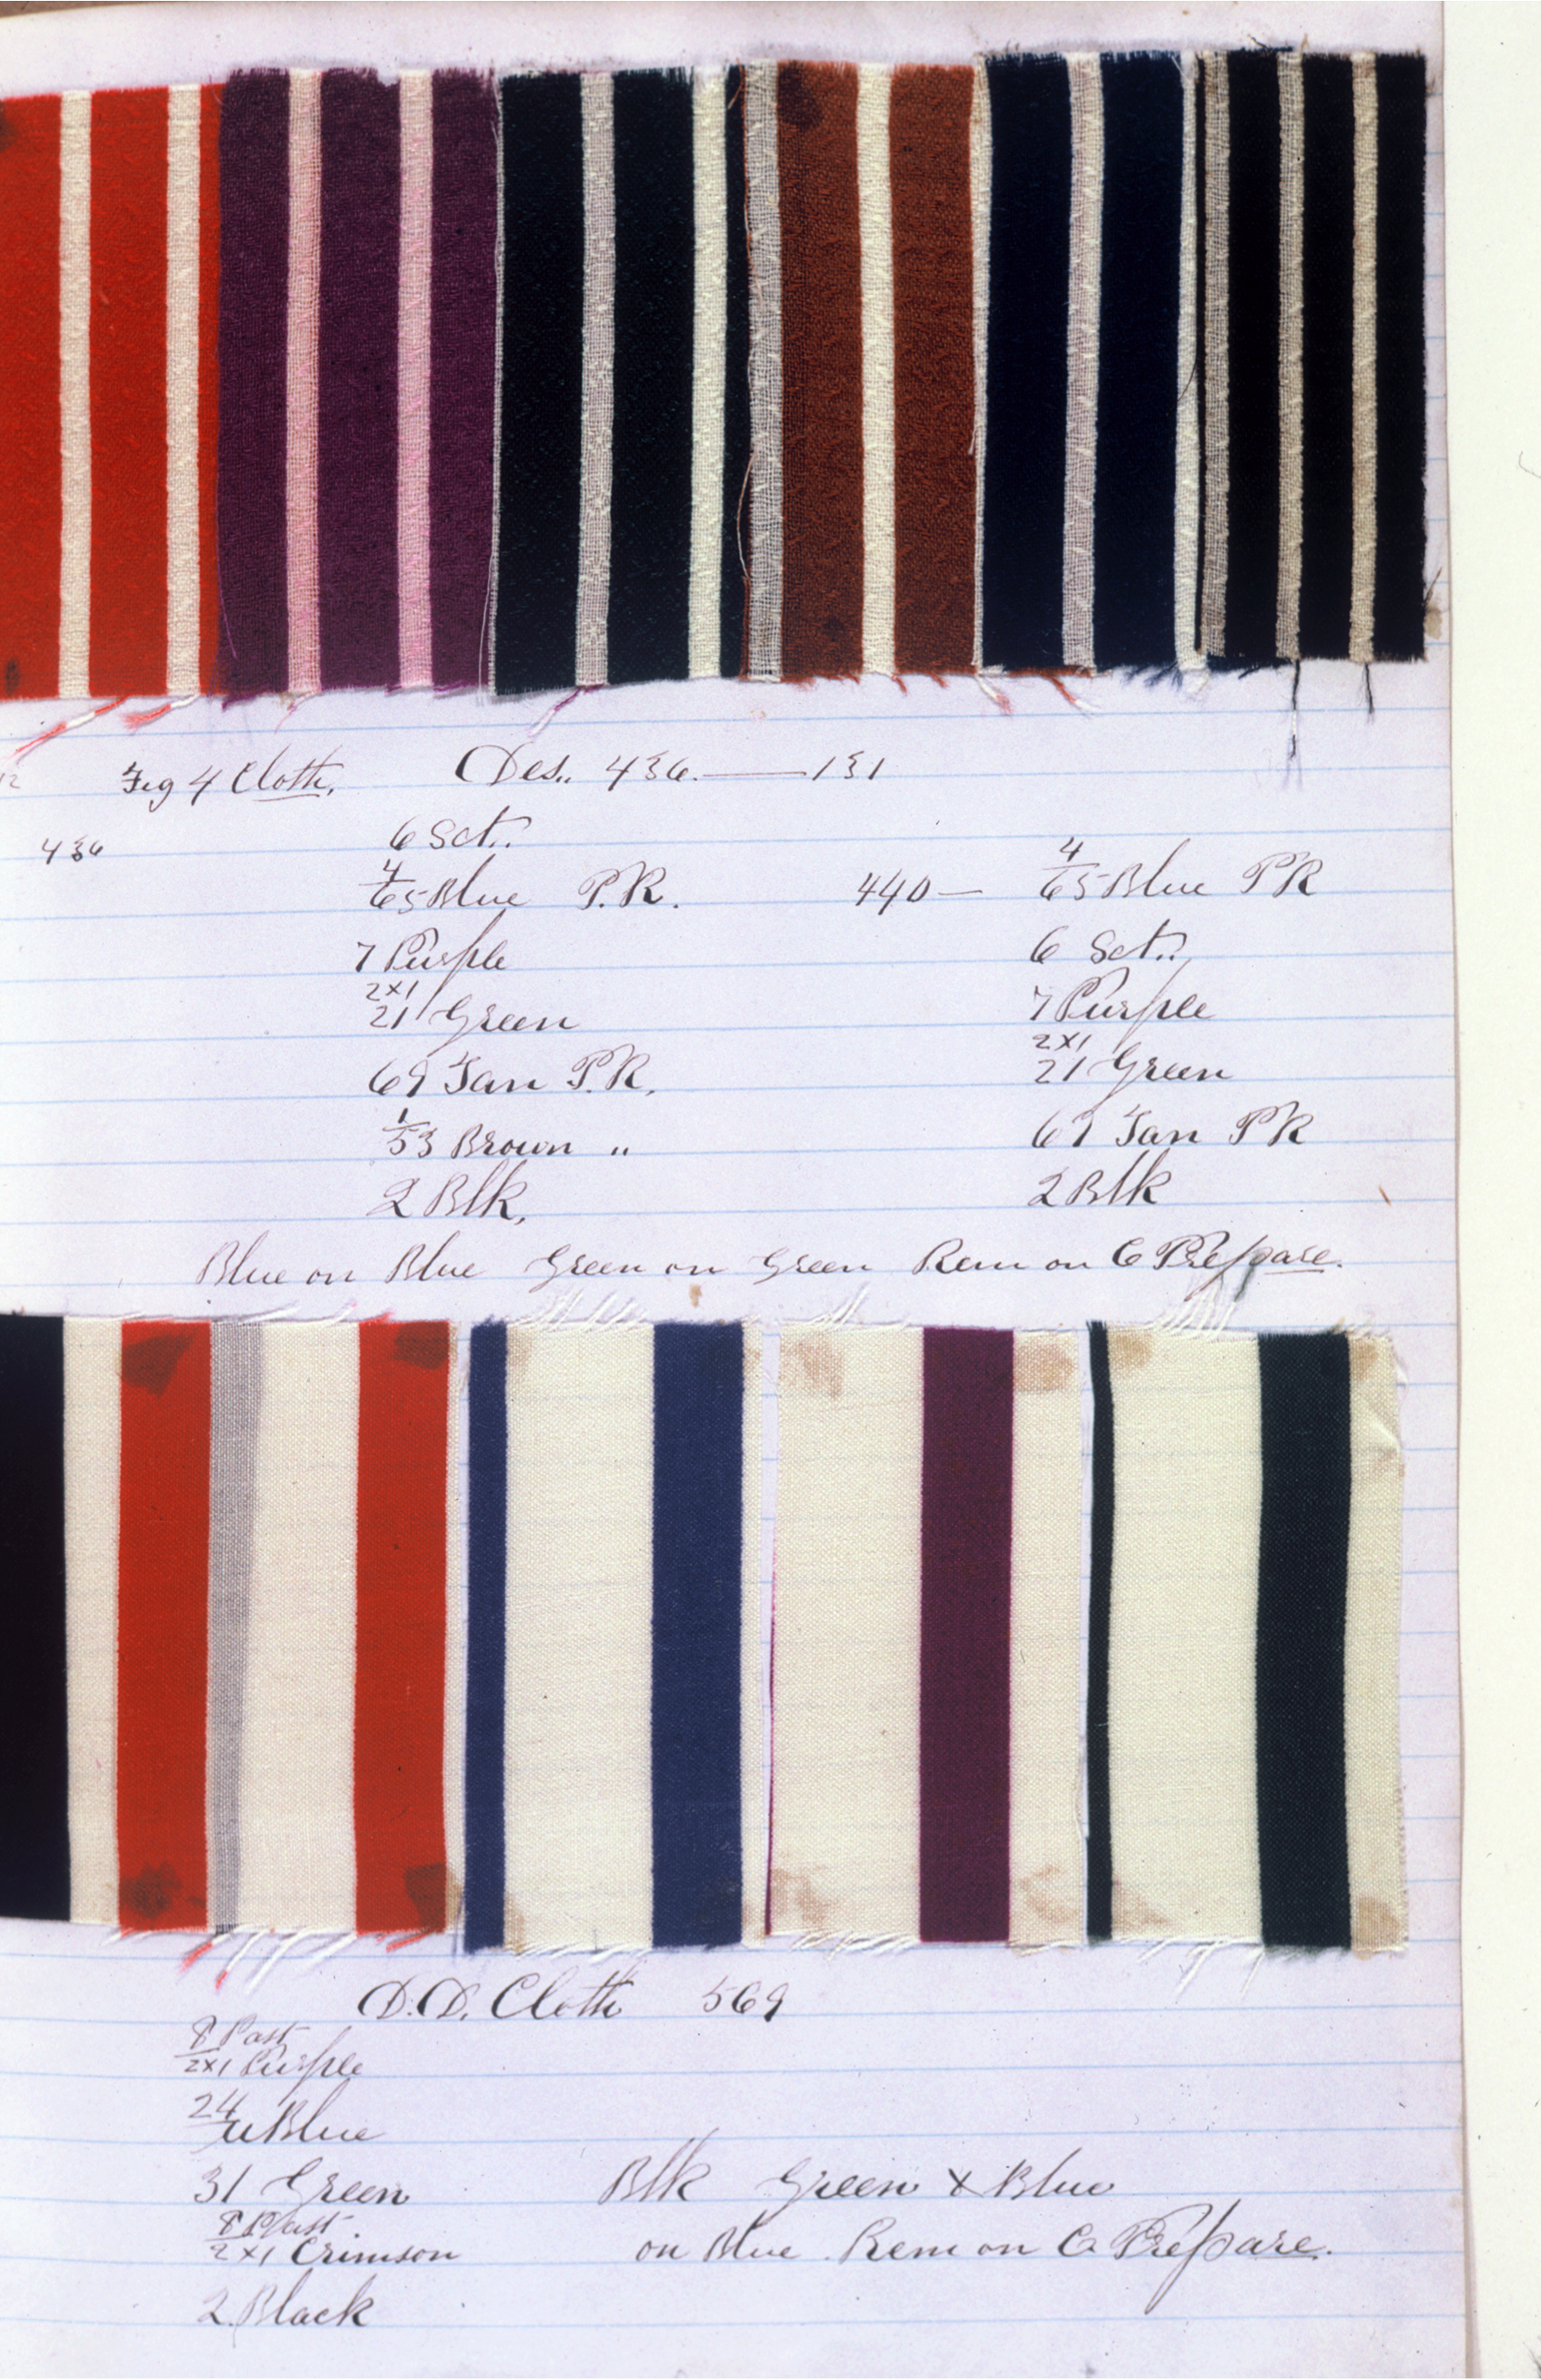 12 Fig 4 Cloth. Des.. 436. — 131
436
6 Sct..
4/65 Blue P.R.
7 Purple
2x1
21 Green
69 Tan P.R.
1/53 Brown "
2 Blk.
440 — 4/65 Blue PR
6 Sct..
7 Purple
2x1
21 Green
69 Tan PR
2 Blk
Blue on Blue Green on Green Rem on C Prepare.
D.D. Cloth 569
8 Past
2x1 Purple
24
Blue
31 Green
8 Past.
2x1 Crimson
2 Black
Blk Green x Blue
on Blue. Rem on C Prepare.